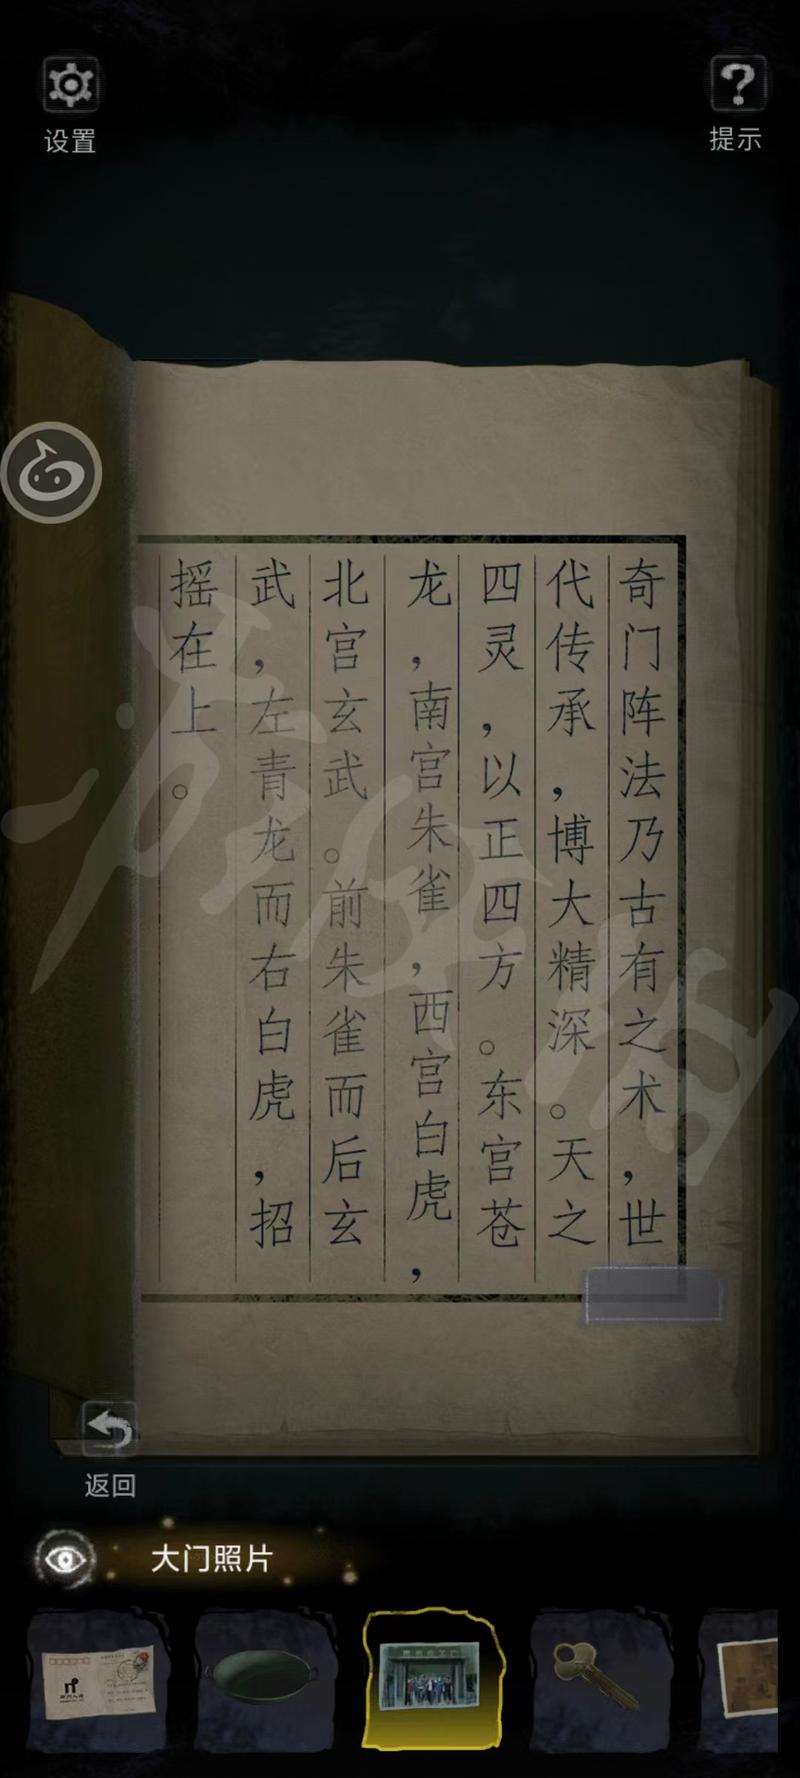 设置
提示
奇门阵法乃古有之术，世
代传承，博大精深。天之
四灵，以正四方。东宫苍
龙，南宫朱雀，西宫白虎，
北宫玄武。前朱雀而后玄
武，左青龙而右白虎，招
摇在上。
返回
大门照片